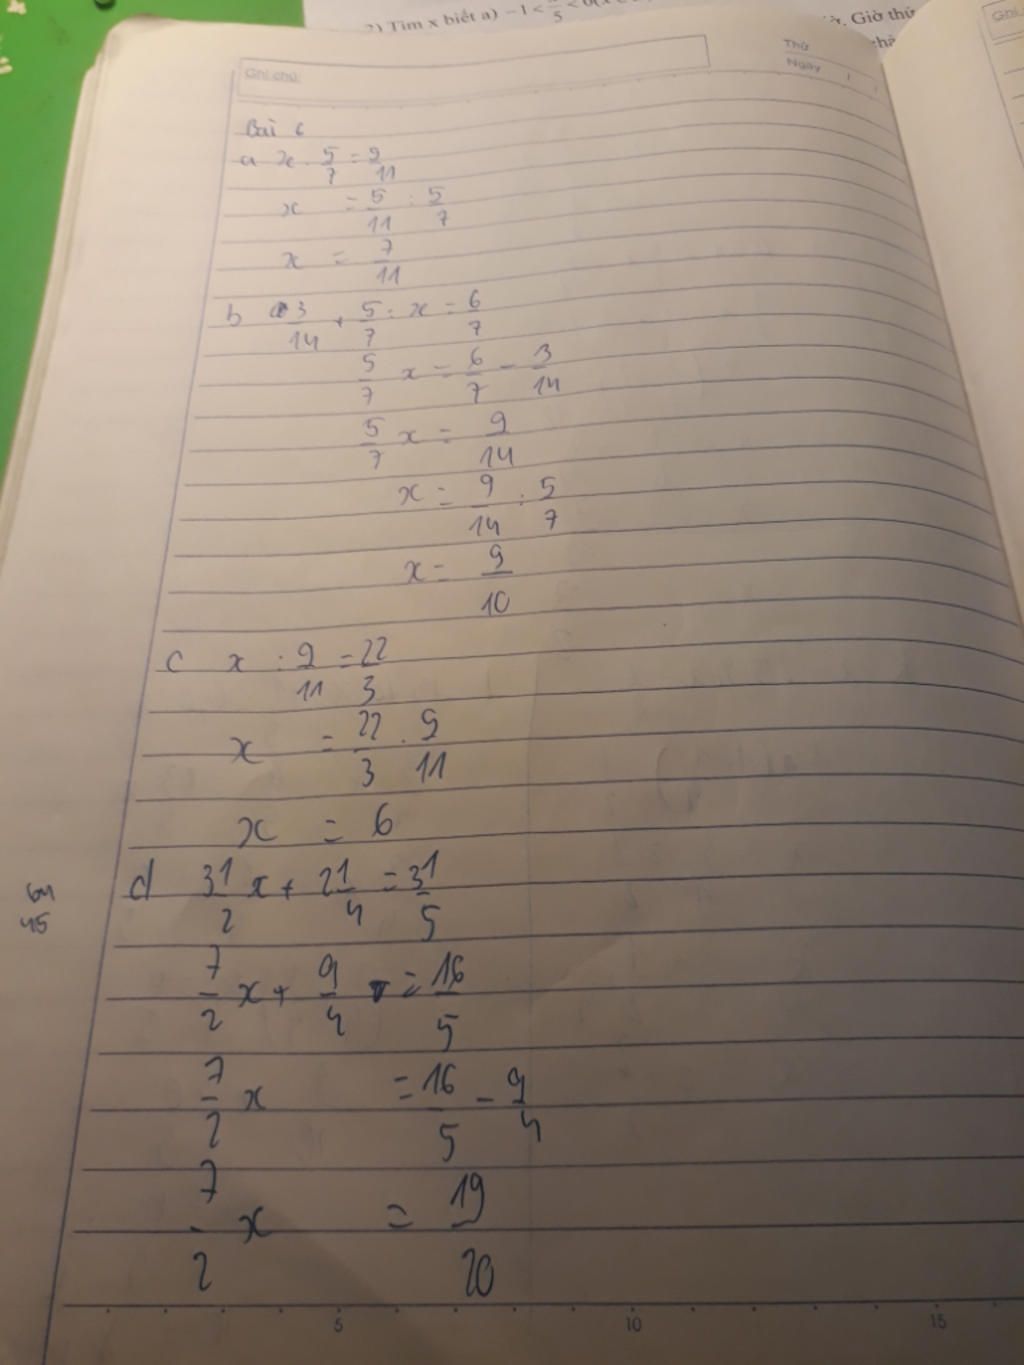 2) Tìm x biết a) -1 <
5
Giờ thứ
Ghi
Ghi chú:
Thứ
Ngày / /
Bài 6
a x . 5/7 = 9/11
x = 5/11 : 5/7
x = 7/11
b 3/14 + 5/7 : x = 6/7
5/7 x = 6/7 - 3/14
5/7 x = 9/14
x = 9/14 : 5/7
x = 9/10
c x : 9/11 = 22/3
x = 22/3 . 9/11
x = 6
d 3 1/2 x + 2 1/4 = 3 1/5
64
45
7/2 x + 9/4 = 16/5
7/2 x = 16/5 - 9/4
7/2 x = 19/20
5 10 15